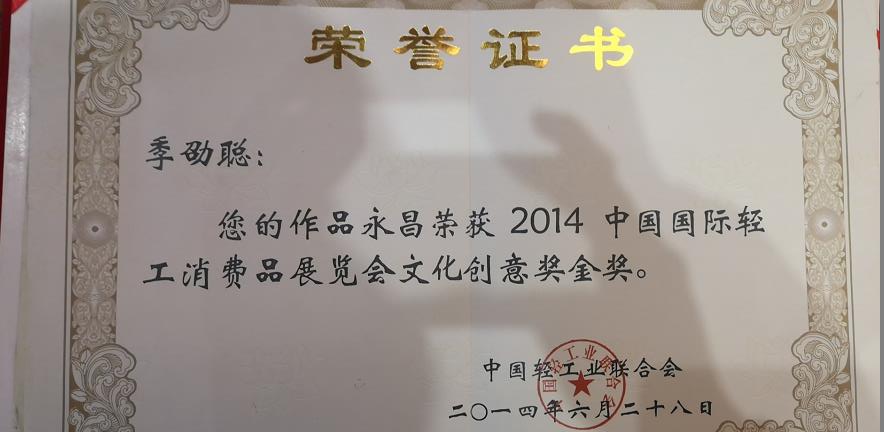 荣誉证书
季劭聪：
您的作品永昌荣获 2014 中国国际轻
工消费品展览会文化创意奖金奖。
中国轻工业联合会
二〇一四年六月二十八日